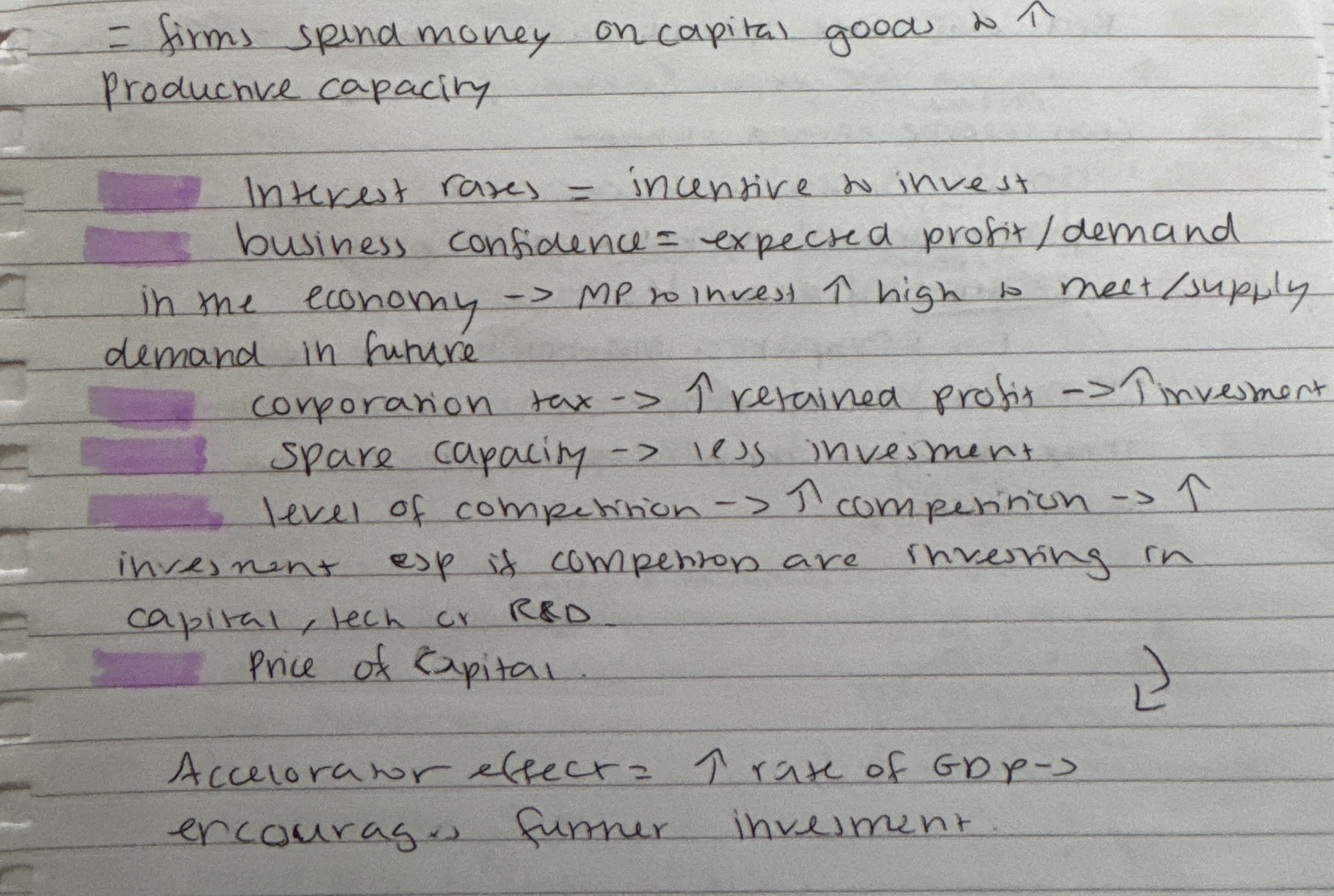 = firms spend money on capital goods to ↑
Productive capacity
Interest rates = incentive to invest
business confidence = expected profit/demand
in the economy -> MP to invest ↑ high to meet/supply
demand in future
corporation tax -> ↑ retained profit -> ↑ invesment
spare capacity -> less invesment
level of competition -> ↑ competition -> ↑
invesment esp if competitors are investing in
capital, tech or R&D
Price of Capital.
Accelorator effect = ↑ rate of GDP ->
encourages further invesment.